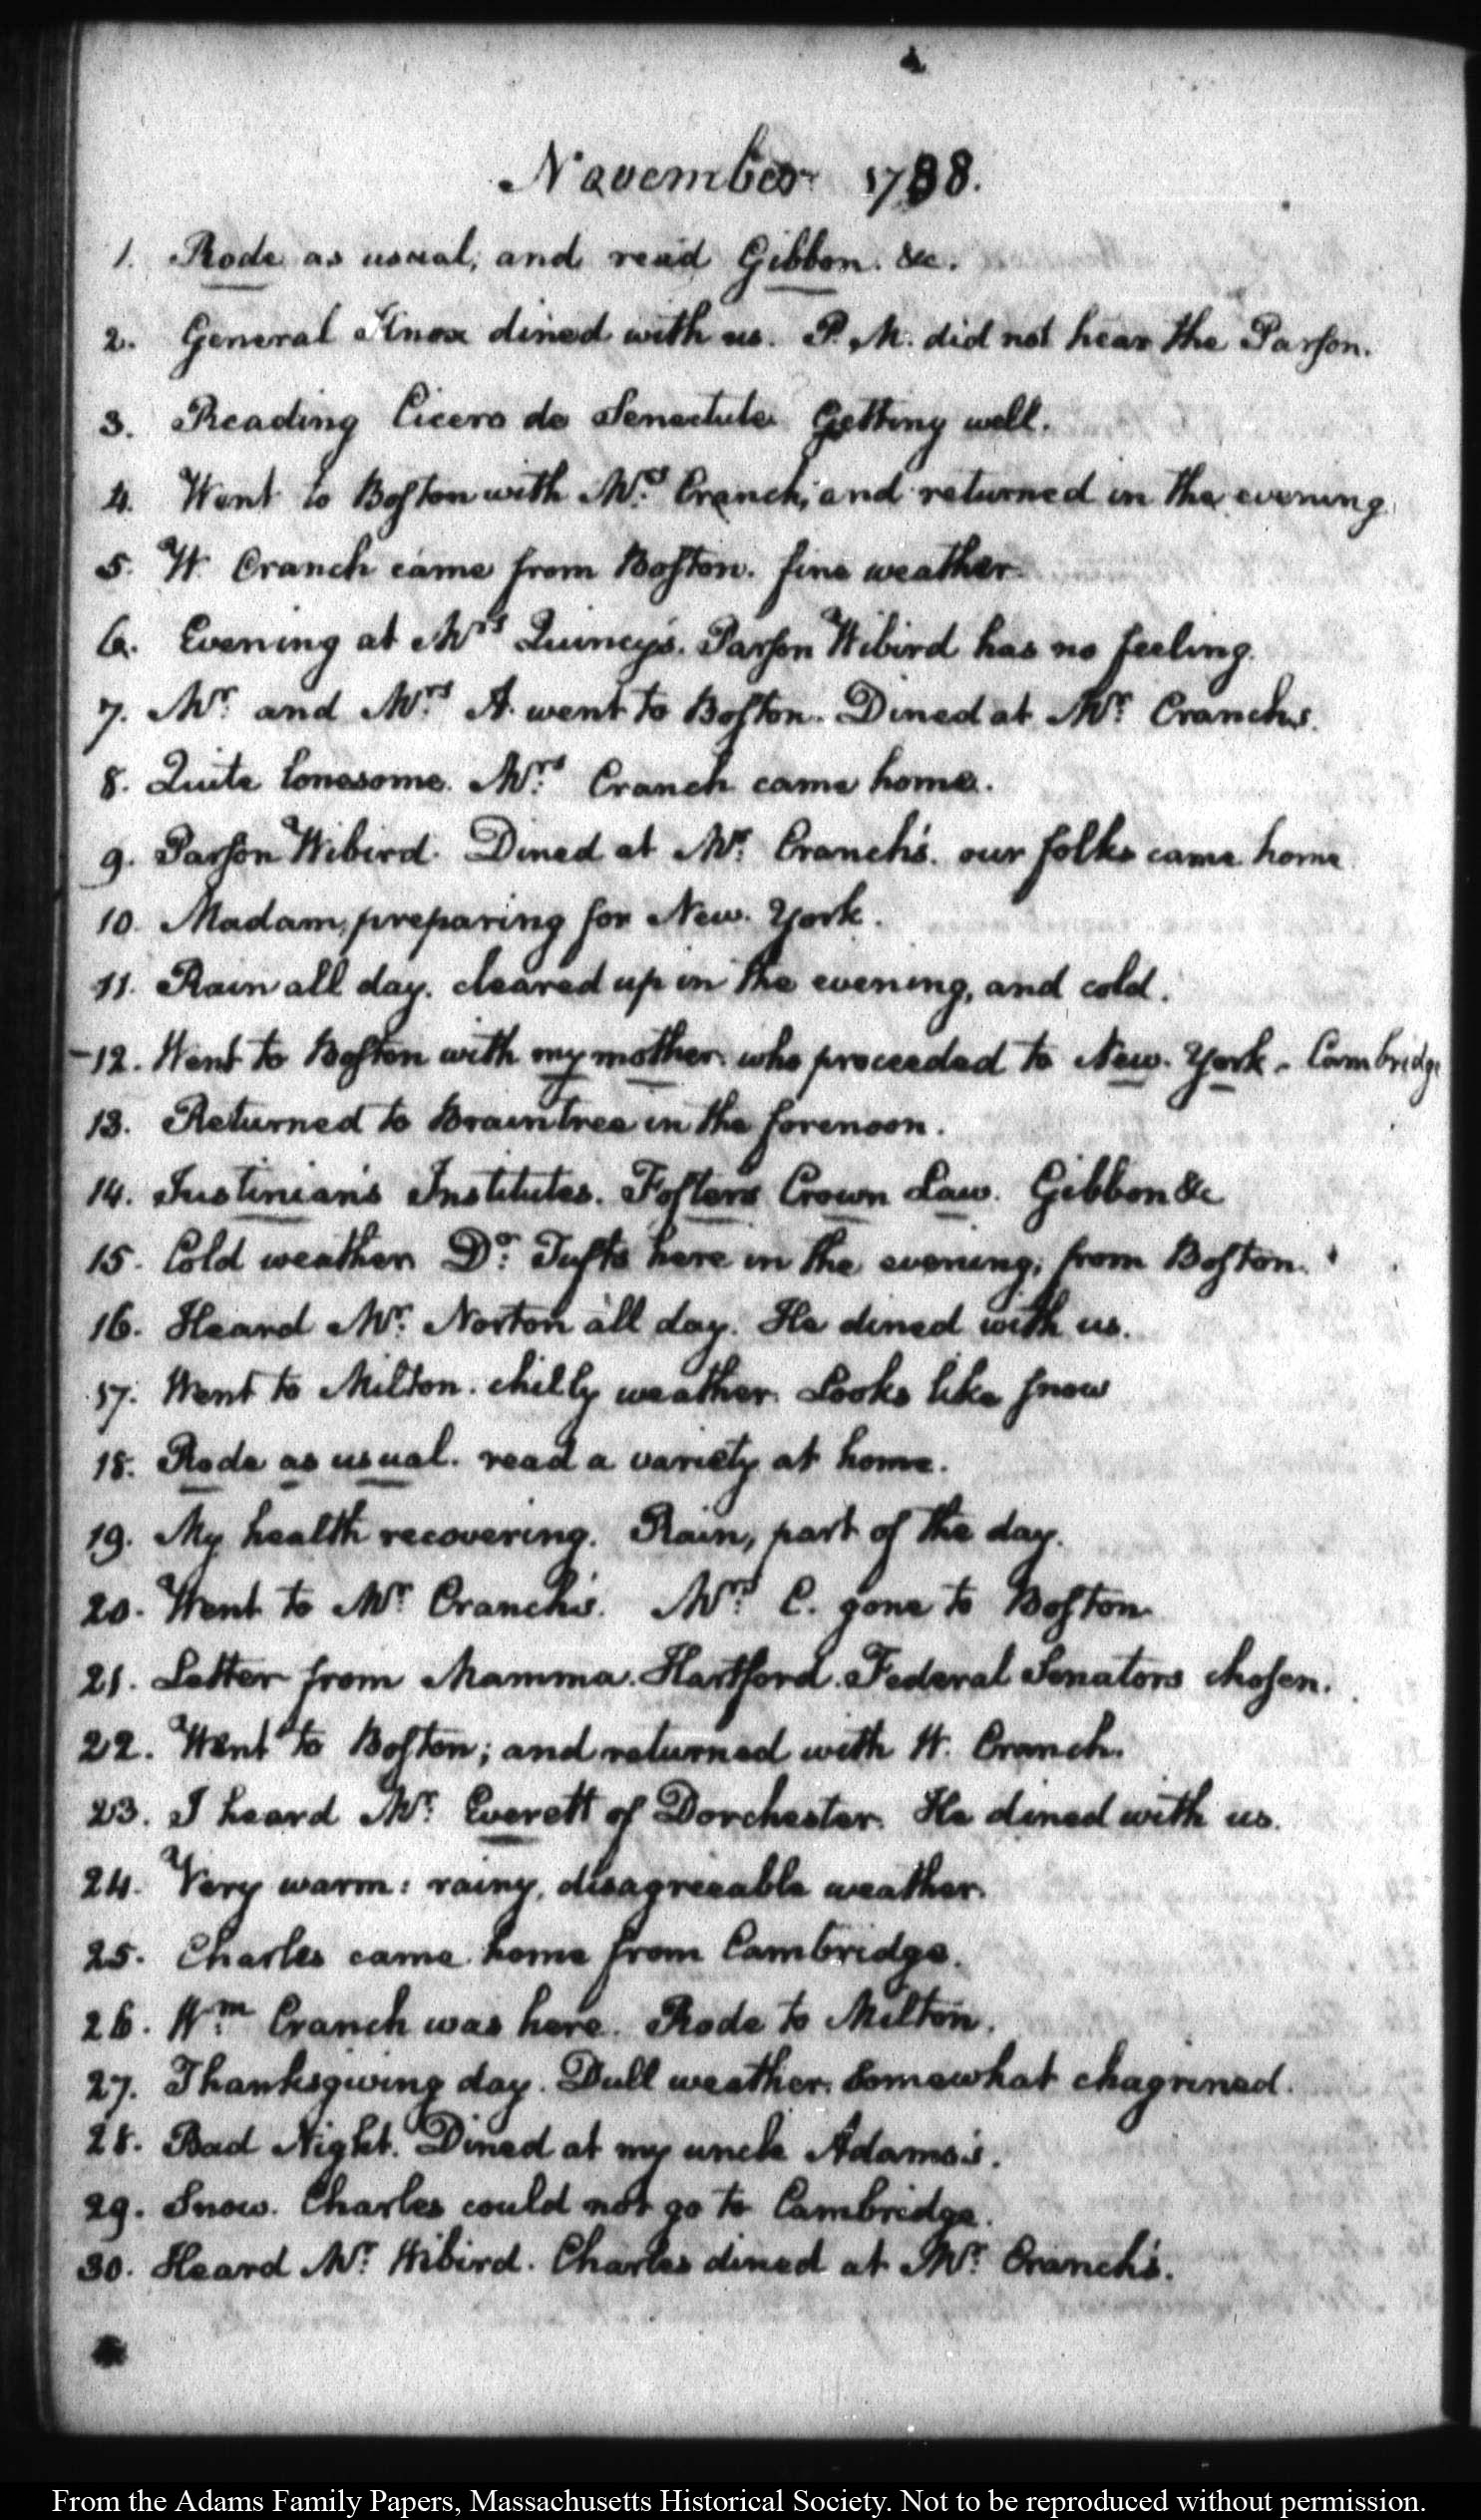 November 1788.
1. Rode as usual, and read Gibbon. &c.
2. General Knox dined with us. P. M. did not hear the Parson.
3. Reading Cicero de Senectute. Getting well.
4. Went to Boston with Mrs. Cranch, and returned in the evening.
5. W. Cranch came from Boston. fine weather.
6. Evening at Mrs Quincy's. Parson Wibird has no feeling.
7. Mr. and Mrs. A. went to Boston. Dined at Mr. Cranchs.
8. Quite lonesome. Mrs. Cranch came home.
9. Parson Wibird. Dined at Mr. Cranch's. our folks came home
10. Madam, preparing for New. York.
11. Rain all day. cleared up in the evening, and cold.
-12. Went to Boston with my mother. who proceeded to New. York. Cambridge
13. Returned to Braintree in the forenoon.
14. Justinian's Institutes. Foster's Crown Law. Gibbon &c
15. Cold weather. Dr. Tufts here in the evening; from Boston.
16. Heard Mr. Norton all day. He dined with us.
17. Went to Milton. chilly weather. Looks like snow
18. Rode as usual. read a variety at home.
19. My health recovering. Rain, part of the day.
20. Went to Mr. Cranch's. Mrs. C. gone to Boston.
21. Letter from Mamma. Hartford. Federal Senators chosen.
22. Went to Boston; and returned with W. Cranch.
23. I heard Mr. Everett of Dorchester. He dined with us.
24. Very warm: rainy, disagreeable weather.
25. Charles came home from Cambridge.
26. Wm. Cranch was here. Rode to Milton.
27. Thanksgiving day. Dull weather. Somewhat chagrined.
28. Bad Night. Dined at my uncle Adams's.
29. Snow. Charles could not go to Cambridge.
30. Heard Mr. Wibird. Charles dined at Mr. Cranch's.
From the Adams Family Papers, Massachusetts Historical Society. Not to be reproduced without permission.